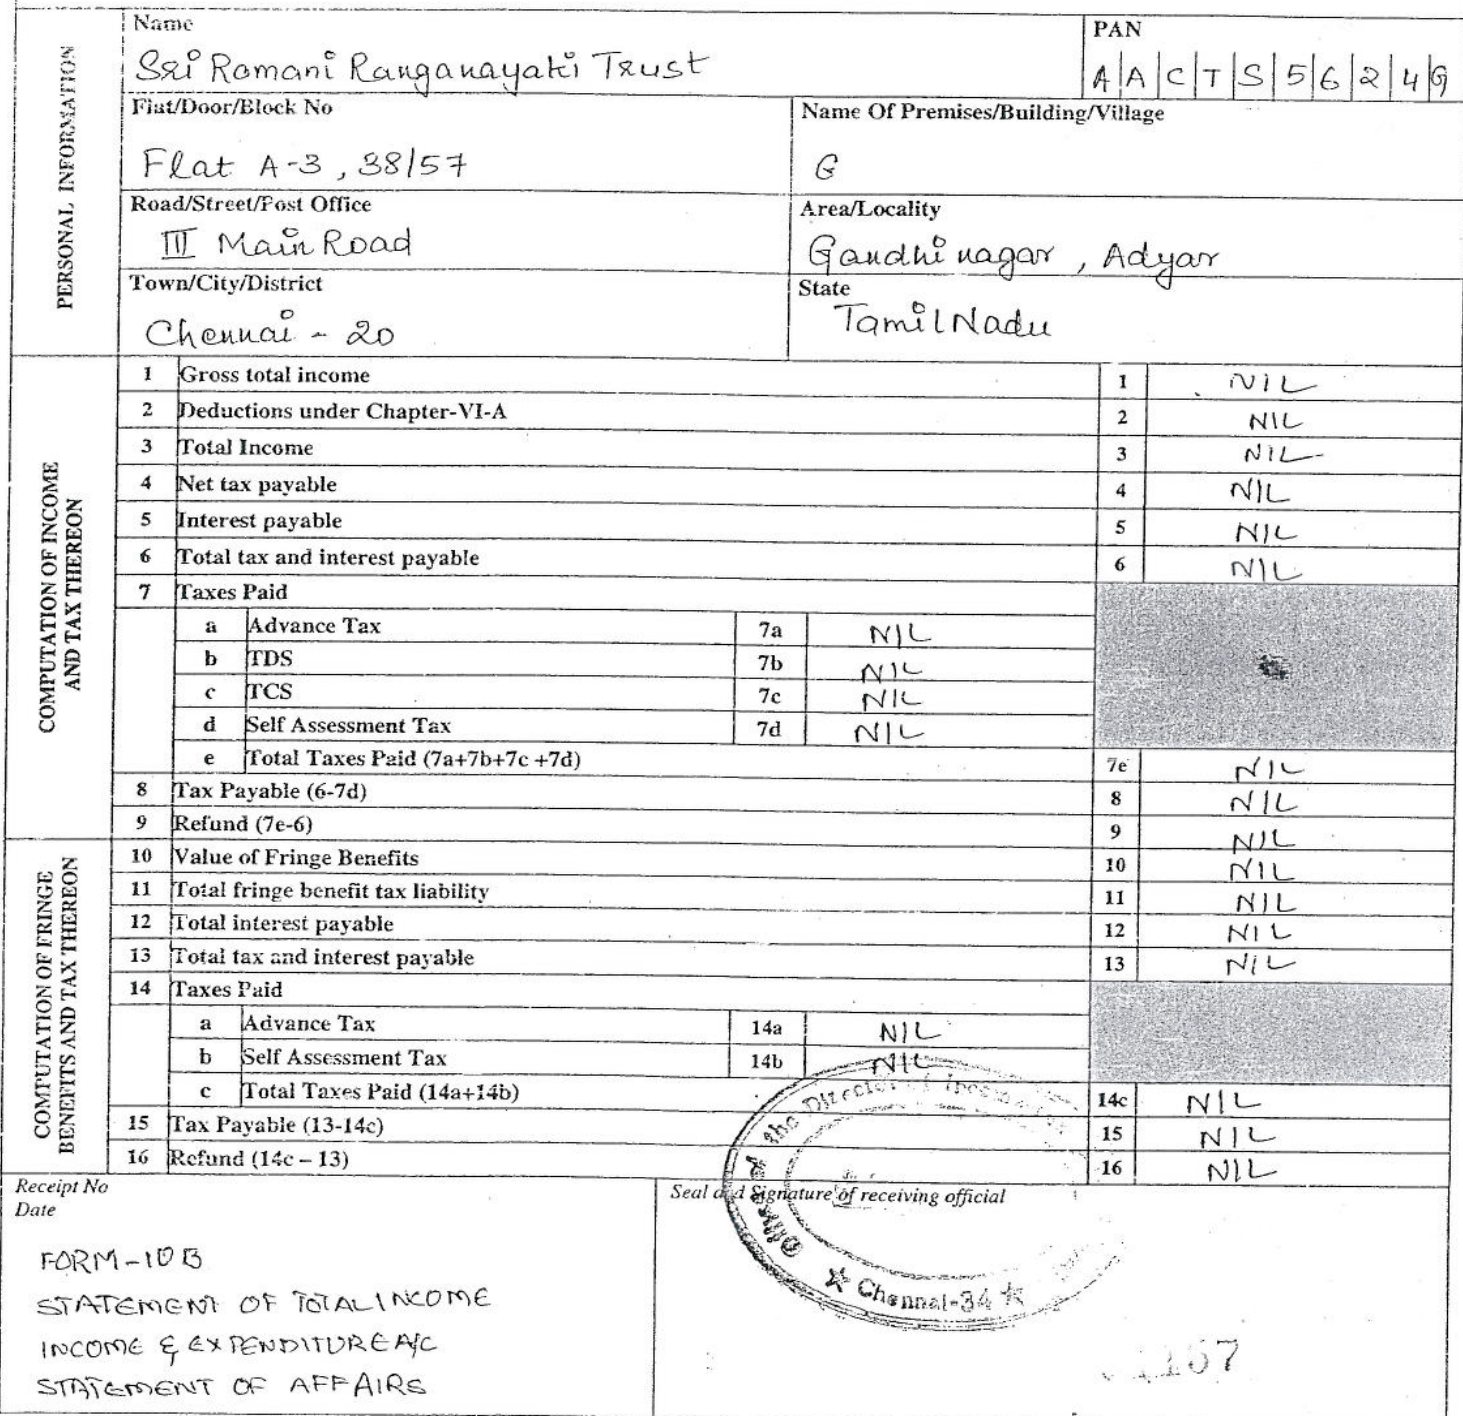 Name
Sri Ramani Ranganayaki Trust
PAN
A A C T S 5 6 2 4 G
PERSONAL INFORMATION
Flat/Door/Block No
Flat A-3, 38/57
Name Of Premises/Building/Village
G
Road/Street/Post Office
III Main Road
Area/Locality
Gandhi nagar, Adyar
Town/City/District
Chennai - 20
State
Tamil Nadu
COMPUTATION OF INCOME AND TAX THEREON
1 Gross total income 1 NIL
2 Deductions under Chapter-VI-A 2 NIL
3 Total Income 3 NIL
4 Net tax payable 4 NIL
5 Interest payable 5 NIL
6 Total tax and interest payable 6 NIL
7 Taxes Paid
a Advance Tax 7a NIL
b TDS 7b NIL
c TCS 7c NIL
d Self Assessment Tax 7d NIL
e Total Taxes Paid (7a+7b+7c +7d) 7e NIL
8 Tax Payable (6-7d) 8 NIL
9 Refund (7e-6) 9 NIL
COMPUTATION OF FRINGE BENEFITS AND TAX THEREON
10 Value of Fringe Benefits 10 NIL
11 Total fringe benefit tax liability 11 NIL
12 Total interest payable 12 NIL
13 Total tax and interest payable 13 NIL
14 Taxes Paid
a Advance Tax 14a NIL
b Self Assessment Tax 14b NIL
c Total Taxes Paid (14a+14b) 14c NIL
15 Tax Payable (13-14c) 15 NIL
16 Refund (14c – 13) 16 NIL
Receipt No
Date
Seal and Signature of receiving official
FORM-10B
STATEMENT OF TOTAL INCOME
INCOME & EXPENDITURE A/C
STATEMENT OF AFFAIRS
the Director of
Chennai-34